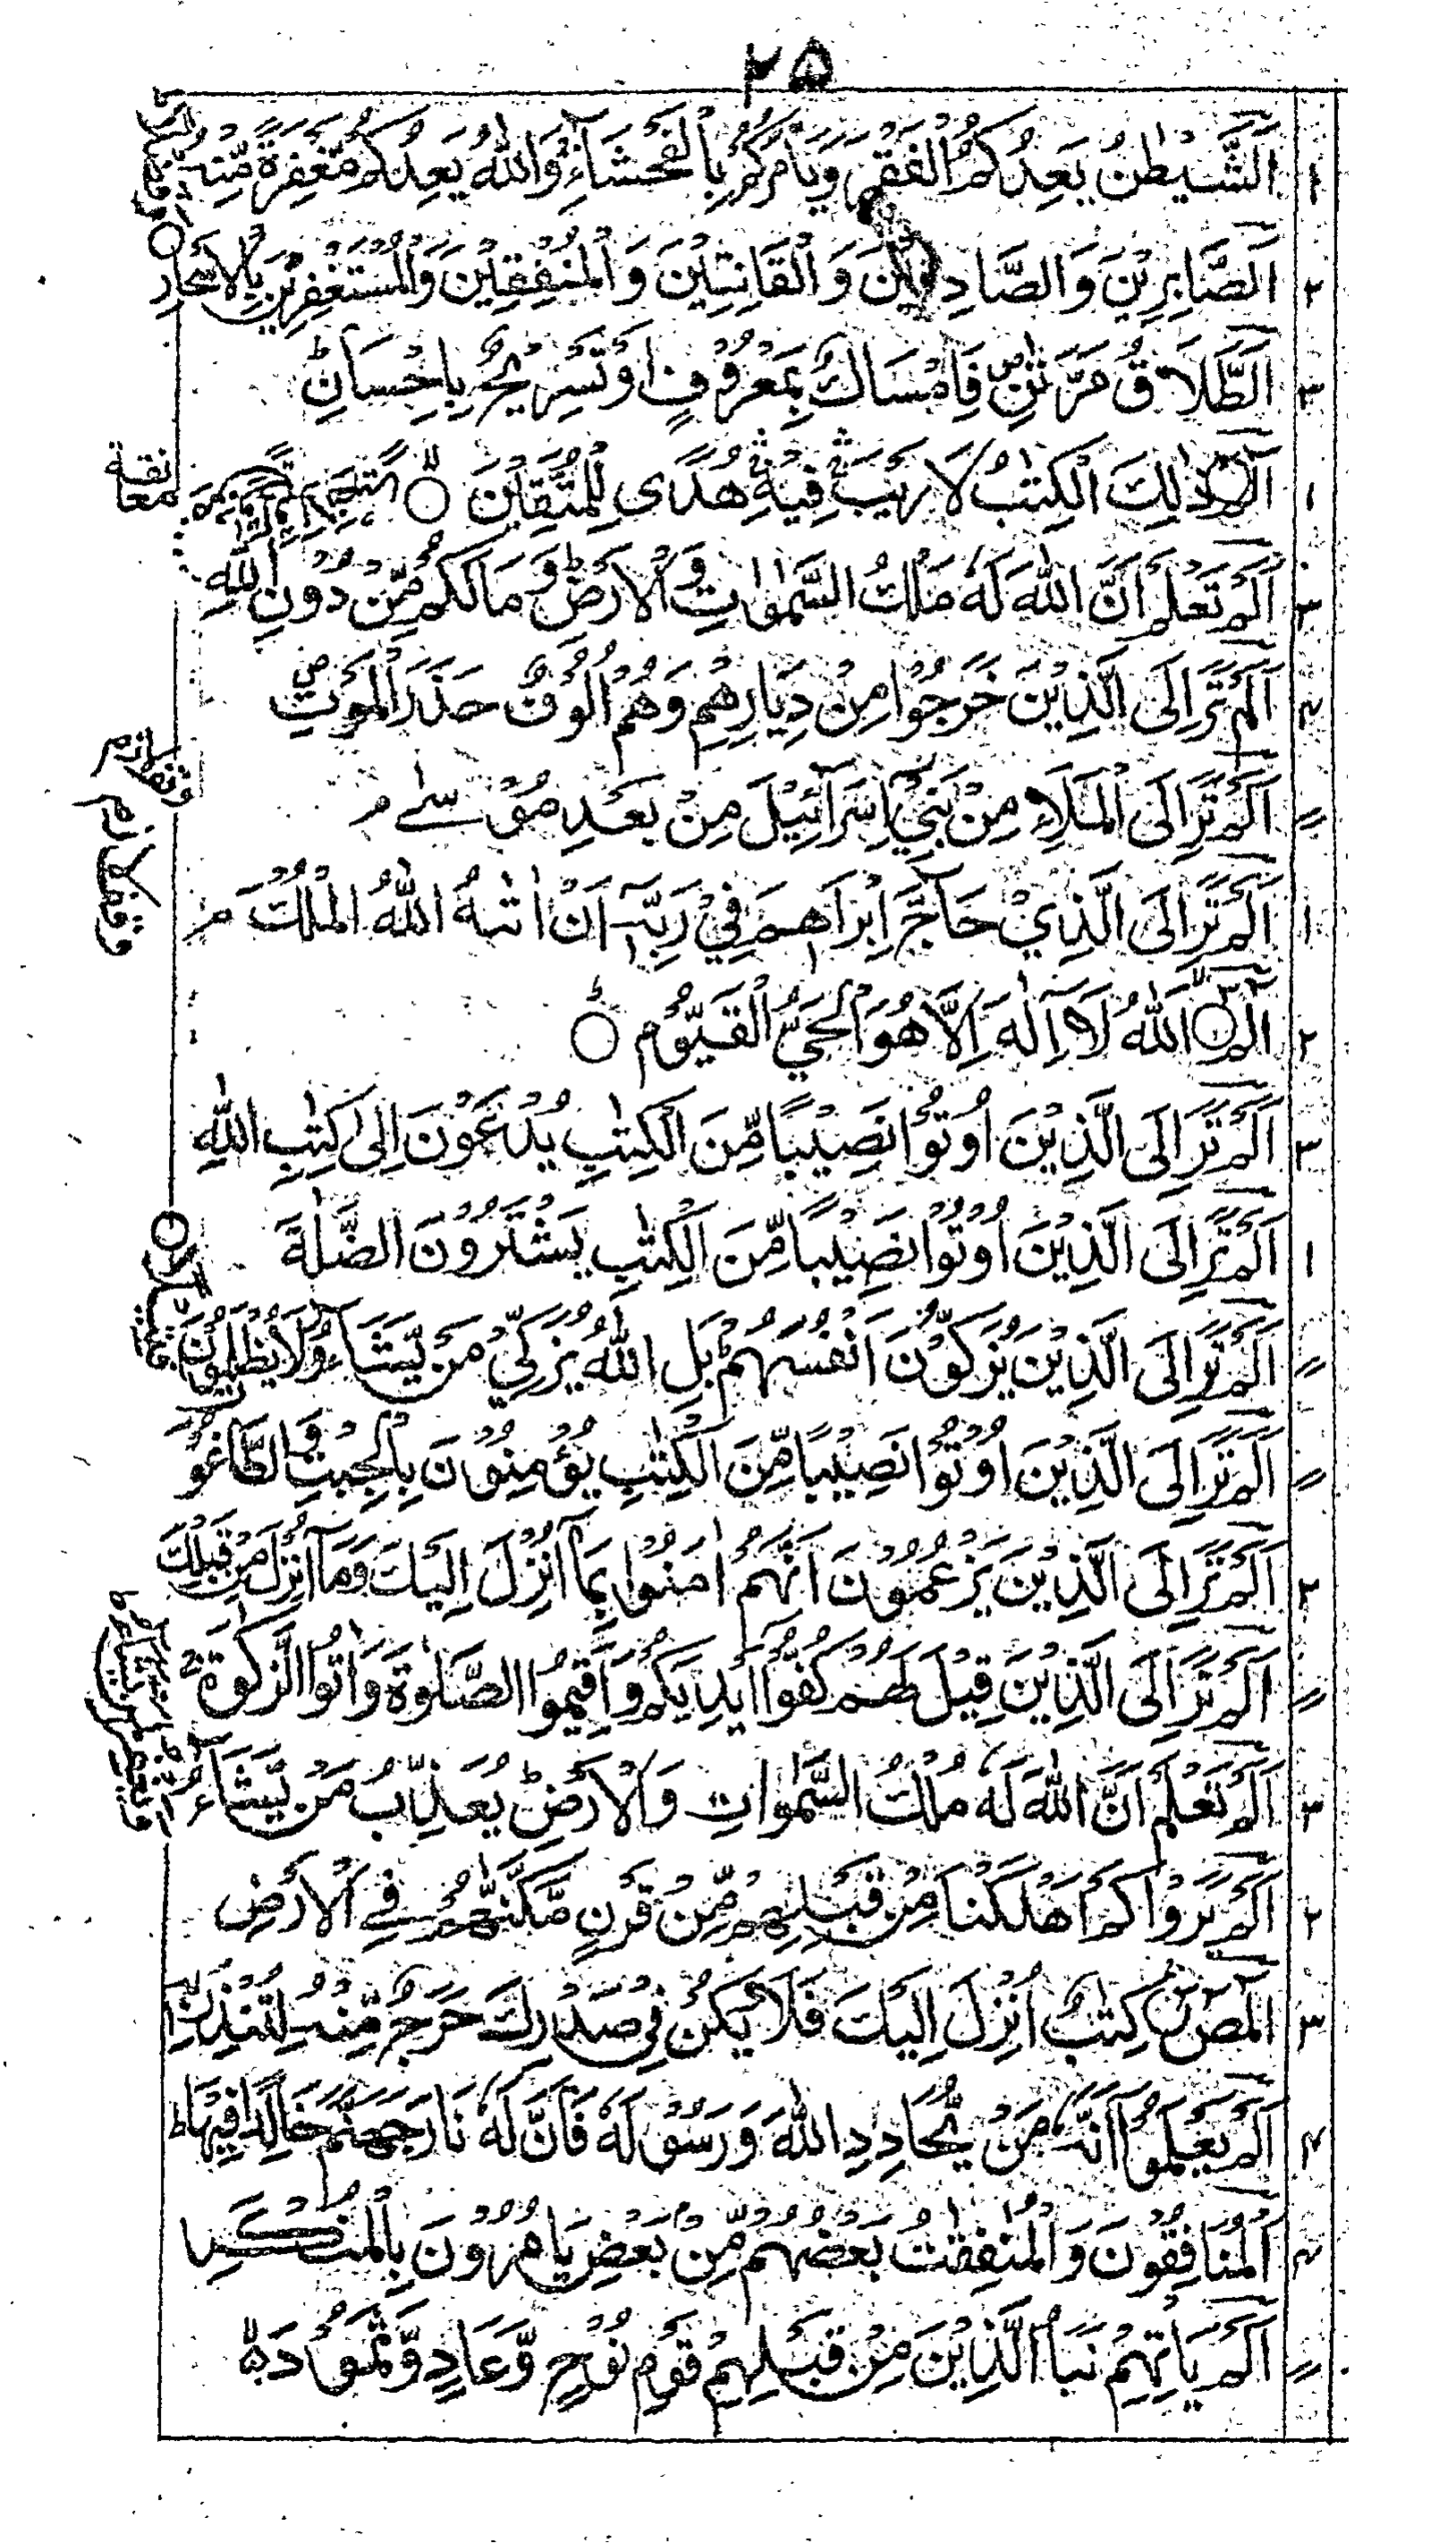 ٢٥
١ اَلشَّيْطٰنُ يَعِدُكُمُ الْفَقْرَ وَيَاْمُرُكُمْ بِالْفَحْشَآءِ وَاللّٰهُ يَعِدُكُمْ مَّغْفِرَةً مِّنْهُ
٢ اَلصَّابِرِيْنَ وَالصَّادِقِيْنَ وَالْقَانِتِيْنَ وَالْمُنْفِقِيْنَ وَالْمُسْتَغْفِرِيْنَ بِالْاَسْحَارِ
٣ اَلطَّلَاقُ مَرَّتٰنِ فَاِمْسَاكٌ بِمَعْرُوْفٍ اَوْ تَسْرِيْحٌ بِاِحْسَانٍ ط
١ الٓمّٓ ○ ذٰلِكَ الْكِتٰبُ لَا رَيْبَ فِيْهِ هُدًى لِّلْمُتَّقِيْنَ ○
معانقة
٣ اَلَمْ تَعْلَمْ اَنَّ اللّٰهَ لَهٗ مُلْكُ السَّمٰوٰتِ وَالْاَرْضِ ط وَمَا لَكُمْ مِّنْ دُوْنِ اللّٰهِ
٢ اَلَمْ تَرَ اِلَى الَّذِيْنَ خَرَجُوْا مِنْ دِيَارِهِمْ وَهُمْ اُلُوْفٌ حَذَرَ الْمَوْتِ ص
〃 اَلَمْ تَرَ اِلَى الْمَلَاِ مِنْ بَنِيْٓ اِسْرَآئِيْلَ مِنْ بَعْدِ مُوْسٰے م
وقف لازم
١ اَلَمْ تَرَ اِلَى الَّذِيْ حَآجَّ اِبْرٰاهِمَ فِيْ رَبِّهٖٓ اَنْ اٰتٰىهُ اللّٰهُ الْمُلْكَ م
وقف لازم
٢ الٓمّٓ ○ اللّٰهُ لَآ اِلٰهَ اِلَّا هُوَ الْحَيُّ الْقَيُّوْمُ ○ ط
٣ اَلَمْ تَرَ اِلَى الَّذِيْنَ اُوْتُوْا نَصِيْبًا مِّنَ الْكِتٰبِ يُدْعَوْنَ اِلٰى كِتٰبِ اللّٰهِ
١ اَلَمْ تَرَ اِلَى الَّذِيْنَ اُوْتُوْا نَصِيْبًا مِّنَ الْكِتٰبِ يَشْتَرُوْنَ الضَّلٰلَةَ
〃 اَلَمْ تَرَ اِلَى الَّذِيْنَ يُزَكُّوْنَ اَنْفُسَهُمْ ط بَلِ اللّٰهُ يُزَكِّيْ مَنْ يَّشَآءُ وَلَا يُظْلَمُوْنَ
〃 اَلَمْ تَرَ اِلَى الَّذِيْنَ اُوْتُوْا نَصِيْبًا مِّنَ الْكِتٰبِ يُؤْمِنُوْنَ بِالْجِبْتِ وَالطَّاغُوْتِ
٢ اَلَمْ تَرَ اِلَى الَّذِيْنَ يَزْعُمُوْنَ اَنَّهُمْ اٰمَنُوْا بِمَآ اُنْزِلَ اِلَيْكَ وَمَآ اُنْزِلَ مِنْ قَبْلِكَ
〃 اَلَمْ تَرَ اِلَى الَّذِيْنَ قِيْلَ لَهُمْ كُفُّوْٓا اَيْدِيَكُمْ وَاَقِيْمُوا الصَّلٰوةَ وَاٰتُوا الزَّكٰوةَ ج
٣ اَلَمْ تَعْلَمْ اَنَّ اللّٰهَ لَهٗ مُلْكُ السَّمٰوَاتِ وَالْاَرْضِ ط يُعَذِّبُ مَنْ يَّشَآءُ
٢ اَلَمْ يَرَوْا كَمْ اَهْلَكْنَا مِنْ قَبْلِهِمْ مِّنْ قَرْنٍ مَّكَّنّٰهُمْ فِے الْاَرْضِ
٣ الٓمّٓصٓ كِتٰبٌ اُنْزِلَ اِلَيْكَ فَلَا يَكُنْ فِيْ صَدْرِكَ حَرَجٌ مِّنْهُ لِتُنْذِرَ
٤ اَلَمْ يَعْلَمُوْٓا اَنَّهٗ مَنْ يُّحَادِدِ اللّٰهَ وَرَسُوْلَهٗ فَاَنَّ لَهٗ نَارَ جَهَنَّمَ خَالِدًا فِيْهَا ط
٢ اَلْمُنَافِقُوْنَ وَالْمُنٰفِقٰتُ بَعْضُهُمْ مِّنْ بَعْضٍ يَاْمُرُوْنَ بِالْمُنْكَرِ
〃 اَلَمْ يَاْتِهِمْ نَبَاُ الَّذِيْنَ مِنْ قَبْلِهِمْ قَوْمِ نُوْحٍ وَّعَادٍ وَّثَمُوْدَ